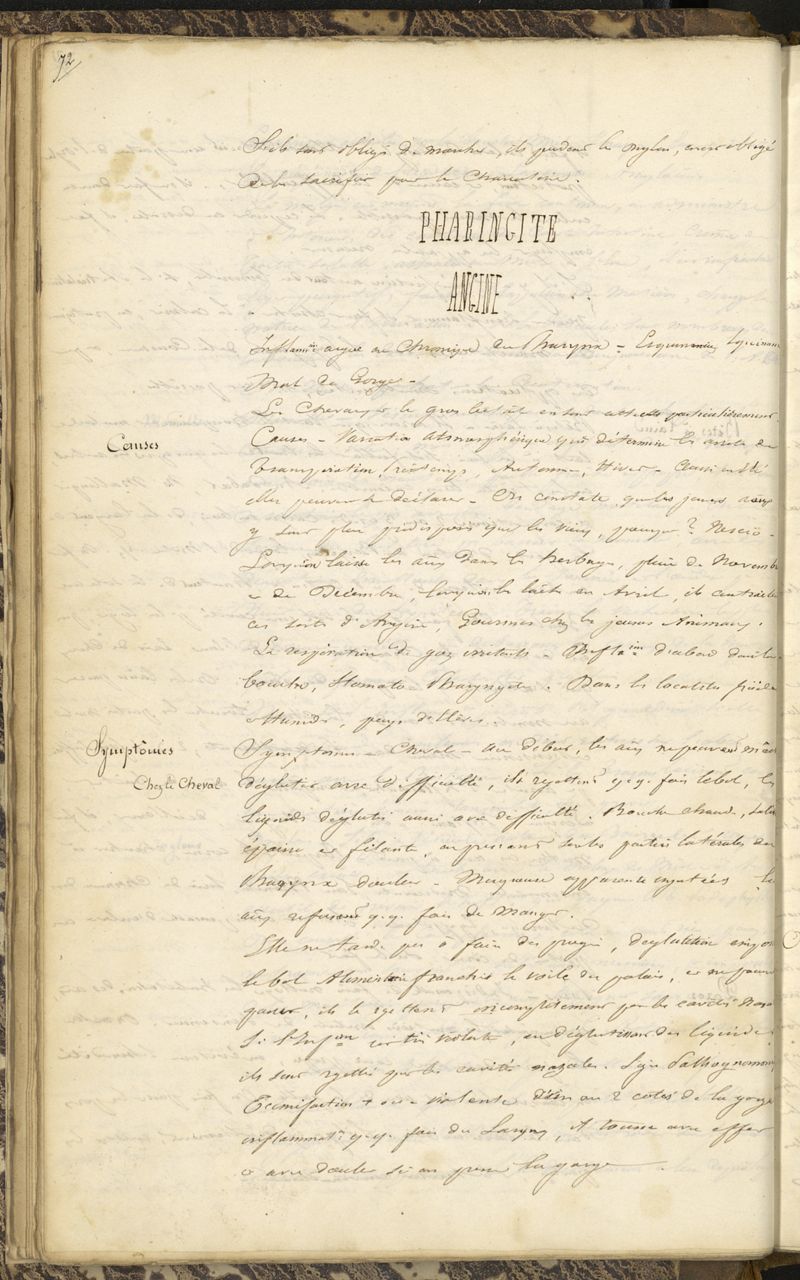 72
S'ils sont obligés de marcher, ils perdent les onglons, on est obligé
de les sacrifier pour la charcuterie.
PHARINGITE
ANGINE
Inflam.on aigue ou chronique du Pharynx - Esquinancie
Mal de Gorge -
Les Chevaux & le gros bétail en sont atteints particulièrement
Causes
Causes - Variation atmosphérique qui détermine les arrêts de
transpiration, Printemps, Automne, Hiver - aussi en été
elles peuvent se déclarer - On constate que les jeunes
y sont plus prédisposés que les vieux, pourquoi ? Nescio -
Lorsqu'on laisse les aux dans les herbages, pluie de Novembre
- de Décembre, lorsqu'on les lâche en Avril, ils contractent
ces sortes d'Angine, Gourmes chez les jeunes Animaux.
La respiration de gaz irritants - d'abord dans la
bouche, Stomato Pharyngite. Dans les localités froides
& Humides, pays
Symptômes
Symptômes - Cheval - au début, les aux ne peuvent
Chez le Cheval
déglutir avec difficulté, ils rejettent q.q. fois le bol, les
liquides déglutis aussi avec difficulté. Bouche chaude, salive
épaisse et filante, en pressant sur les parties latérales du
Pharynx douleur - Muqueuse apparente injectées les
aux refusent q.q. fois de manger.
Elle ne tarde pas à faire des progrès, déglutition
le bol Alimentaire franchit le voile du palais, et ne pouvant
passer, ils le rejettent incomplètement par les cavités
Si l'Inf.on est très violente, en déglutissant des liquides
ils sont rejettés par les cavités nazales. Signe Pathognomonique
Tuméfaction + ou - violente des 2 cotés de la gorge
inflammat.on q.q. fois du Larynx, il tousse avec effort
& avec douleur si on presse la gorge